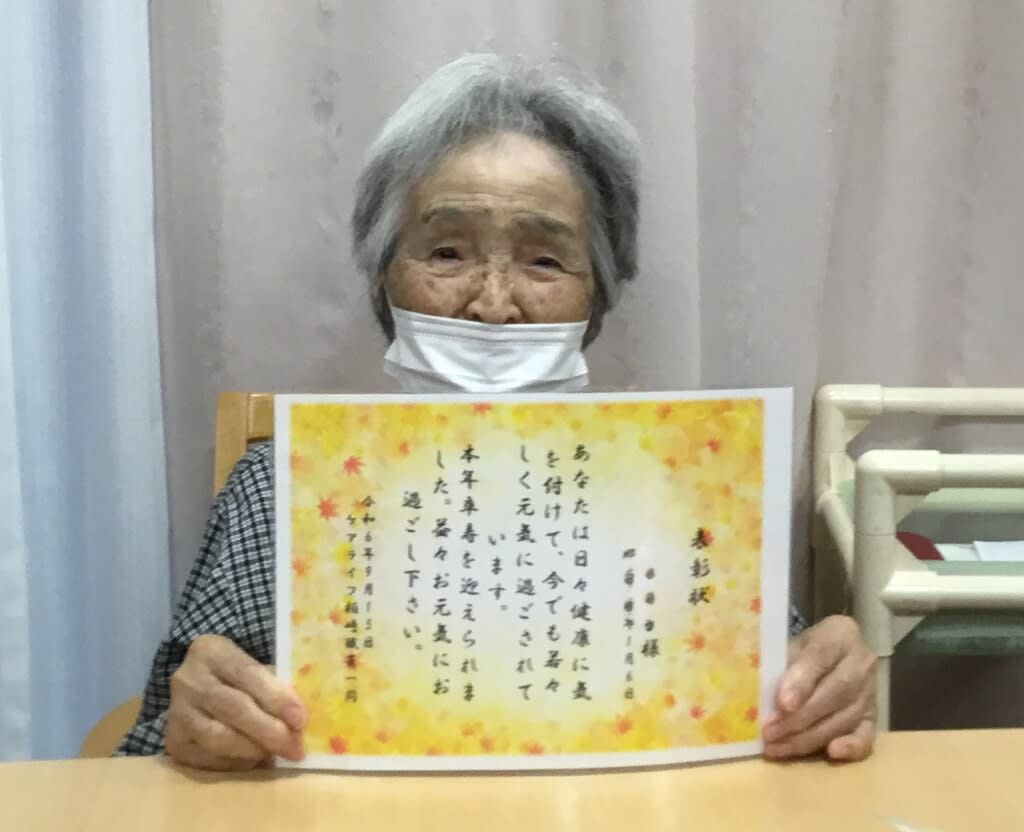 表彰状
様
年1月6日
あなたは日々健康に気
を付けて、今でも若々
しく元気に過ごされて
います。
本年卒寿を迎えられま
した。益々お元気にお
過ごし下さい。
令和6年9月15日
ケアライフ柏崎職員一同